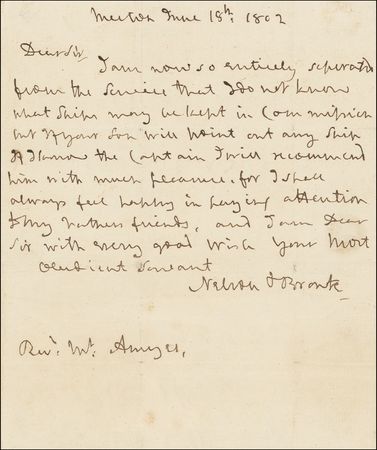 Merton June 18th: 1802
Dear Sir
I am now so entirely seperated
from the Service that I do not know
what Ships may be kept in Commission
but if your Son will point out any Ship
if I know the Captain I will recommend
him with much pleasure. for I shall
always feel happy in paying attention
to My Fathers friends, and I am Dear
Sir with every good wish your Most
Obedient Servant
Nelson & Bronte
Revd. Mr. Amyas,